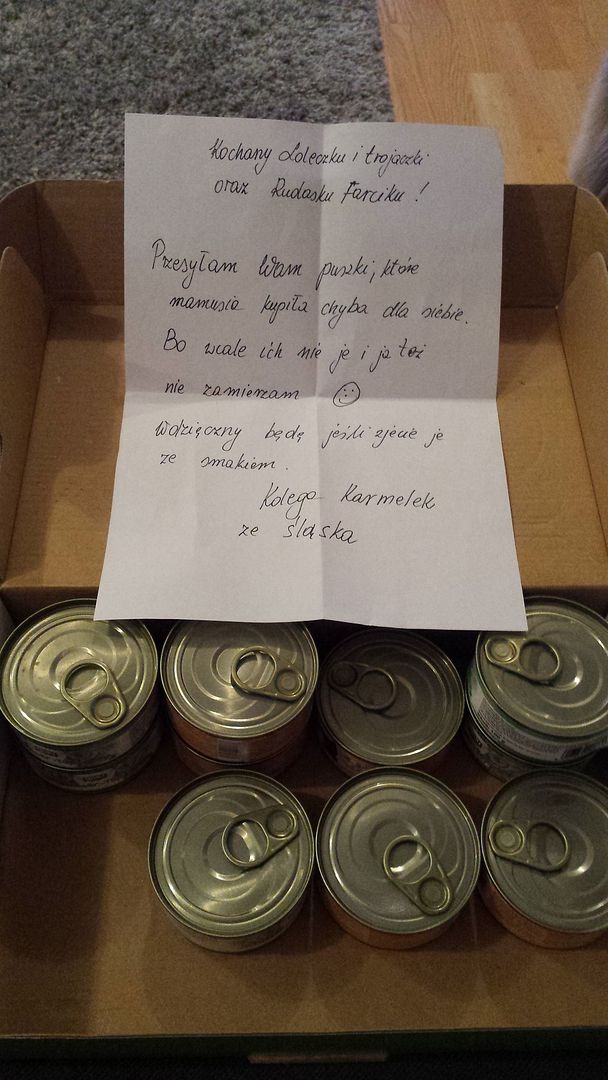 Kochany Loleczku i trojaczki
oraz Rudasku Farciku !
Przesyłam Wam puszki, które
mamusia kupiła chyba dla siebie.
Bo wcale ich nie je i ja też
nie zamierzam ☺
Wdzięczny będę jeśli zjecie je
ze smakiem.
Kolega Karmelek
ze śląska